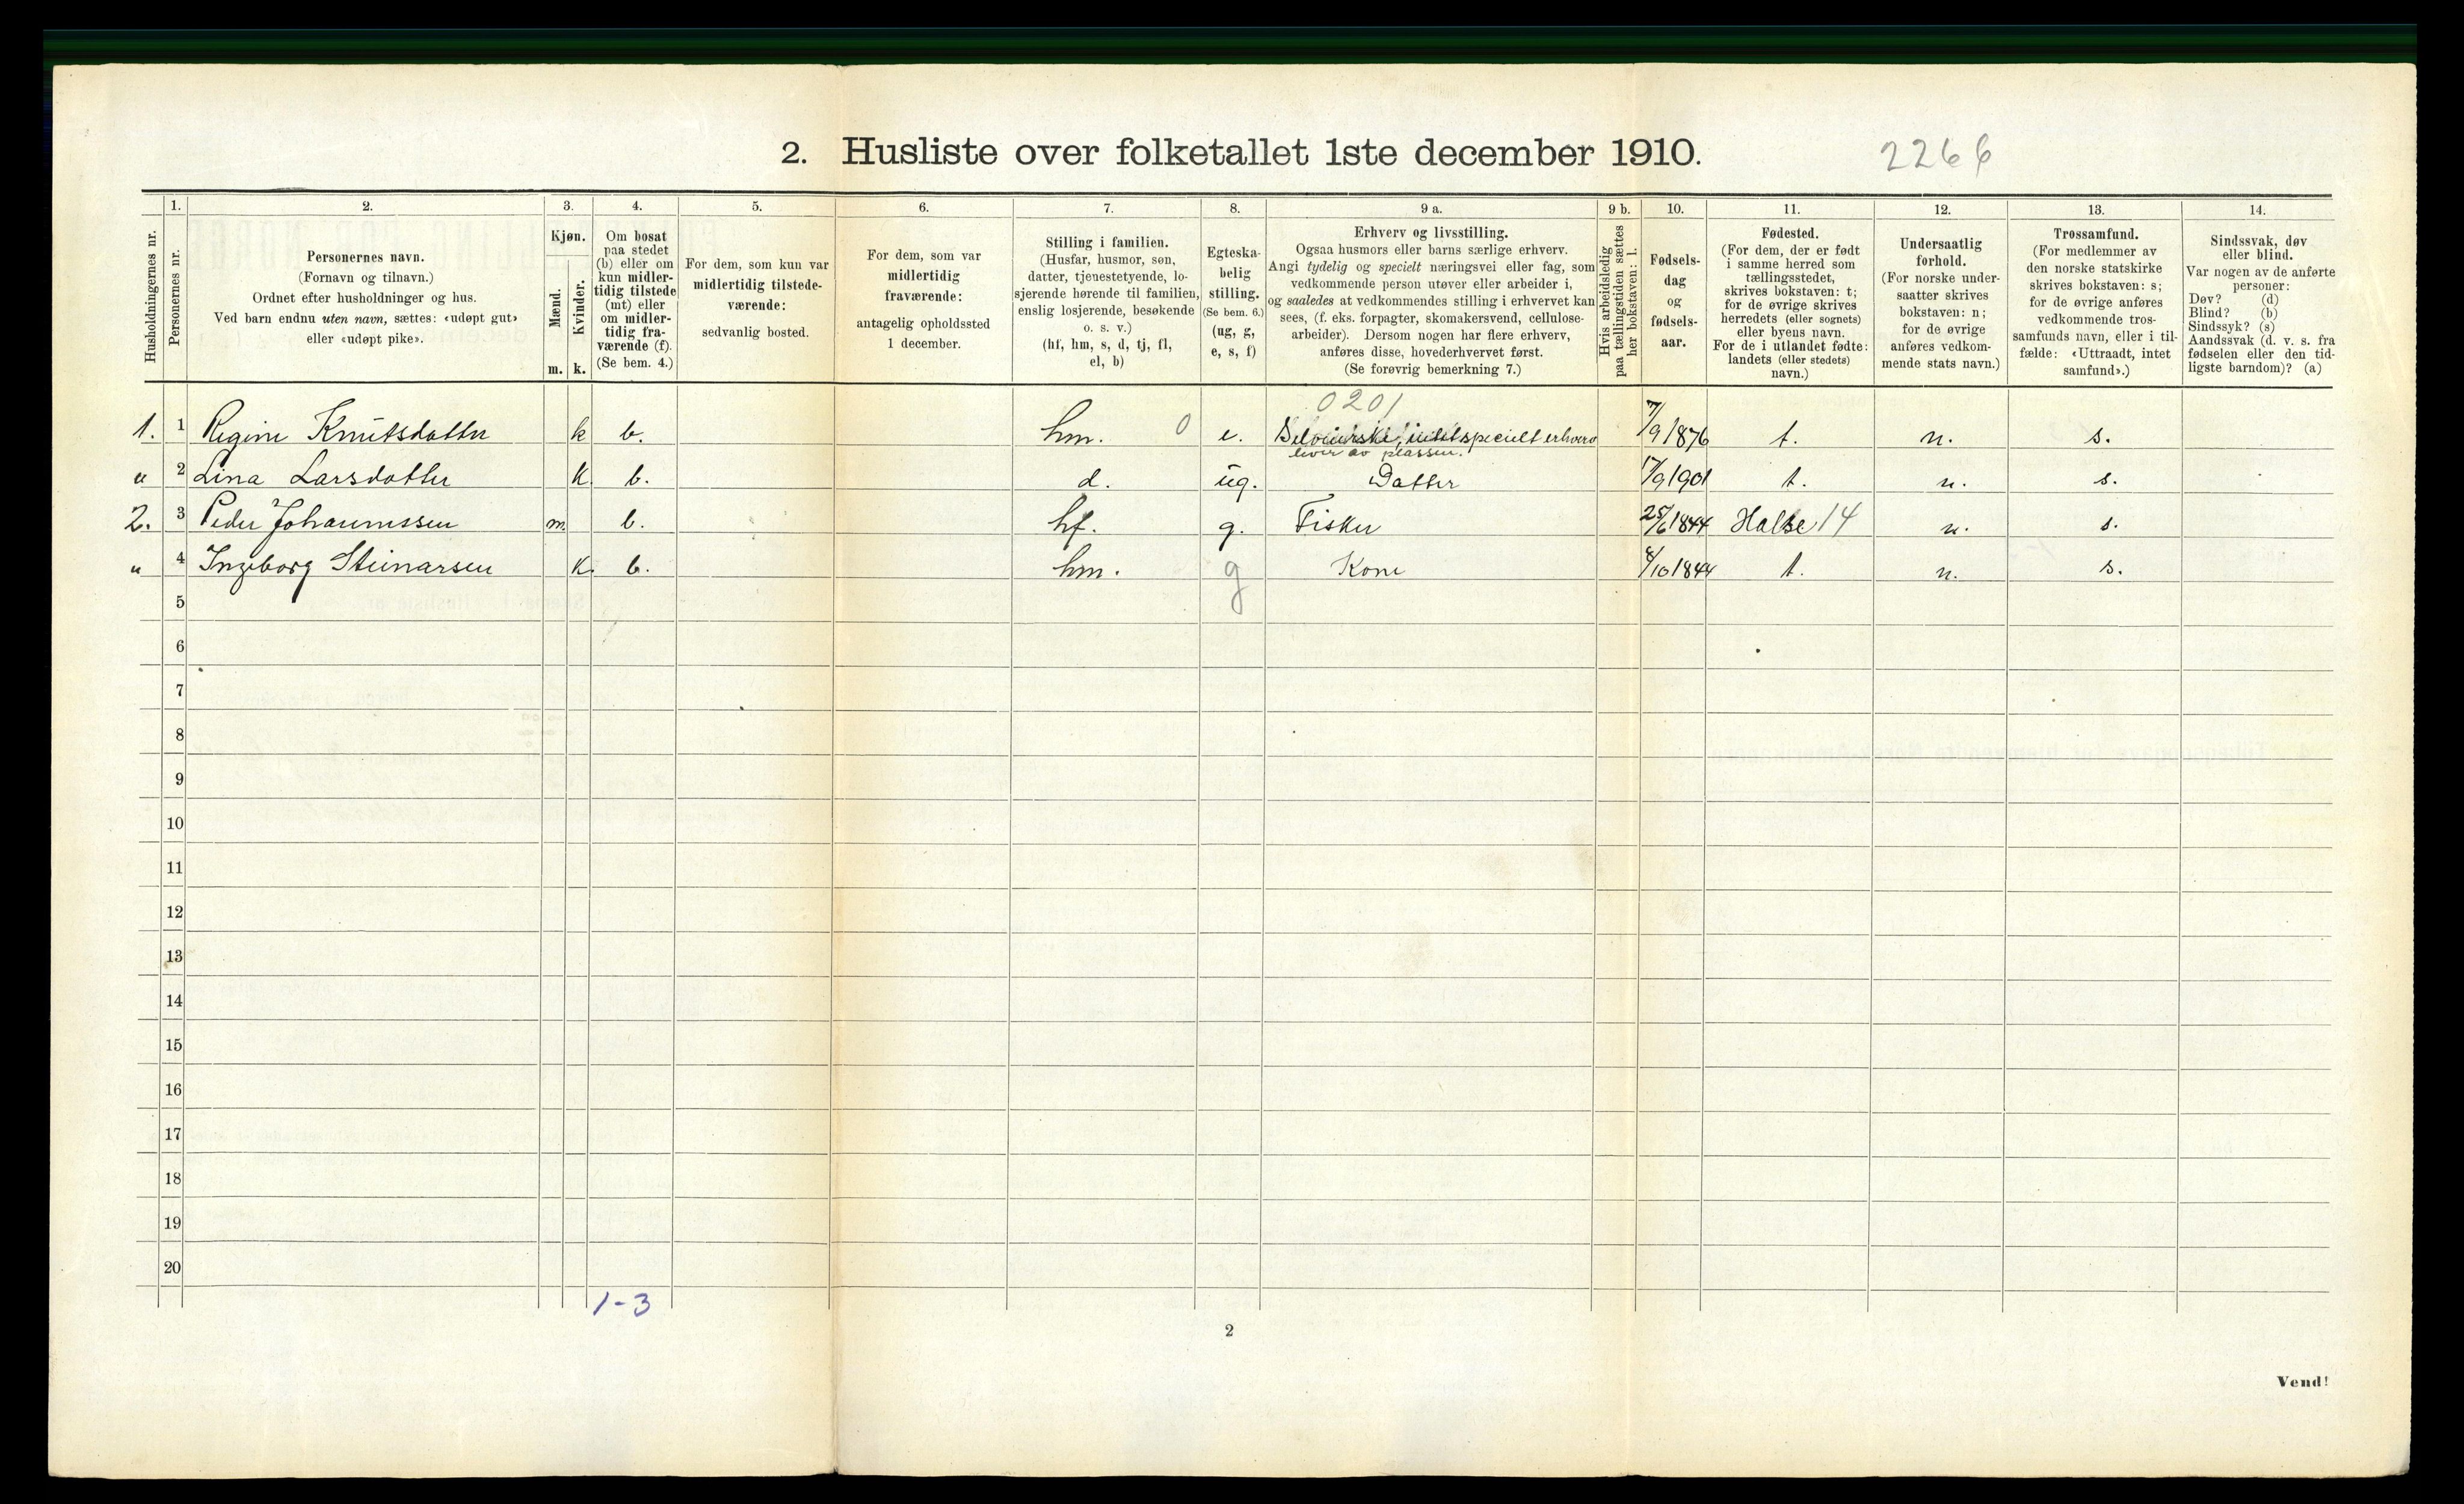 2. Husliste over folketallet 1ste december 1910.
2266
Husholdningernes nr.
1.
Personernes nr.
2.
Personernes navn.
(Fornavn og tilnavn.)
Ordnet efter husholdninger og hus.
Ved barn endnu uten navn, sættes: «udøpt gut»
eller «udøpt pike».
3.
Kjøn.
Mænd.
Kvinder.
m. k.
4.
Om bosat
paa stedet
(b) eller om
kun midler-
tidig tilstede
(mt) eller
om midler-
tidig fra-
værende (f).
(Se bem. 4.)
5.
For dem, som kun var
midlertidig tilstede-
værende:
sedvanlig bosted.
6.
For dem, som var
midlertidig
fraværende:
antagelig opholdssted
1 december.
7.
Stilling i familien.
(Husfar, husmor, søn,
datter, tjenestetyende, lo-
sjerende hørende til familien,
enslig losjerende, besøkende
o. s. v.)
(hf, hm, s, d, tj, fl,
el, b)
8.
Egteska-
belig
stilling.
(Se bem. 6.)
(ug, g,
e, s, f)
9 a.
Erhverv og livsstilling.
Ogsaa husmors eller barns særlige erhverv.
Angi tydelig og specielt næringsvei eller fag, som
vedkommende person utøver eller arbeider i,
og saaledes at vedkommendes stilling i erhvervet kan
sees, (f. eks. forpagter, skomakersvend, cellulose-
arbeider). Dersom nogen har flere erhverv,
anføres disse, hovederhvervet først.
(Se forøvrig bemerkning 7.)
9 b.
Hvis arbeidsledig
paa tællingstiden sættes
her bokstaven: l.
10.
Fødsels-
dag
og
fødsels-
aar.
11.
Fødested.
(For dem, der er født
i samme herred som
tællingsstedet,
skrives bokstaven: t;
for de øvrige skrives
herredets (eller sognets)
eller byens navn.
For de i utlandet fødte:
landets (eller stedets)
navn.)
12.
Undersaatlig
forhold.
(For norske under-
saatter skrives
bokstaven: n;
for de øvrige
anføres vedkom-
mende stats navn.)
13.
Trossamfund.
(For medlemmer av
den norske statskirke
skrives bokstaven: s;
for de øvrige anføres
vedkommende tros-
samfunds navn, eller i til-
fælde: «Uttraadt, intet
samfund».)
14.
Sindssvak, døv
eller blind.
Var nogen av de anførte
personer:
Døv? (d)
Blind? (b)
Sindssyk? (s)
Aandssvak (d. v. s. fra
fødselen eller den tid-
ligste barndom)? (a)
0201
1. 1 Regine Knutsdatter k b. hm. 0 e. specielt erhverv 7/9 1876 t. n. s.
lever av plassen.
" 2 Lina Larsdatter k b. d. ug. Datter 17/9 1901 t. n. s.
2. 3 Peder Johannssen m. b. hf. g. Fisker 25/6 1844 Halse 14 n. s.
" 4 Ingeborg Steinarsen k. b. hm. g Kone 4/10 1844 t. n. s.
5
6
7
8
9
10
11
12
13
14
15
16
17
18
19
20
1-3
2
Vend!